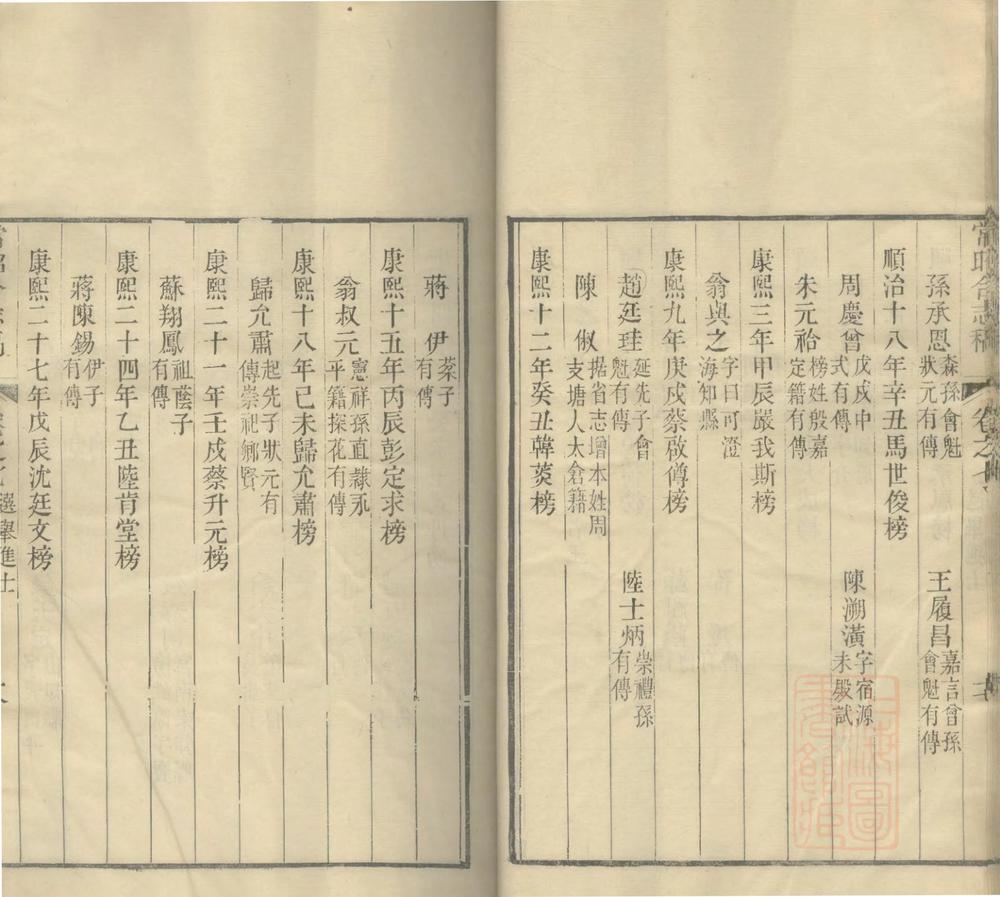 常昭合志稿 卷之
孫承恩 森孫會魁狀元有傳 王履昌 嘉言曾孫會魁有傳
順治十八年辛丑馬世俊榜
周慶曾 戊戌中式有傳 陳溯潢 字宿源未殿試
朱元祫 榜姓殷嘉定籍有傳
康熙三年甲辰嚴我斯榜
翁與之 字曰可澄海知縣
康熙九年庚戌蔡啟僔榜
趙廷珪 延先子會魁有傳 陸士炳 崇禮孫有傳
陳俶 據省志增本姓周支塘人太倉籍
康熙十二年癸丑韓菼榜
蔣伊 棻子有傳
康熙十五年丙辰彭定求榜
翁叔元 憲祥孫直隸永平籍探花有傳
康熙十八年己未歸允肅榜
歸允肅 起先子狀元有傳崇祀鄉賢
康熙二十一年壬戌蔡升元榜
蘇翔鳳 祖蔭子有傳
康熙二十四年乙丑陸肯堂榜
蔣陳錫 伊子有傳
康熙二十七年戊辰沈廷文榜
選舉進士